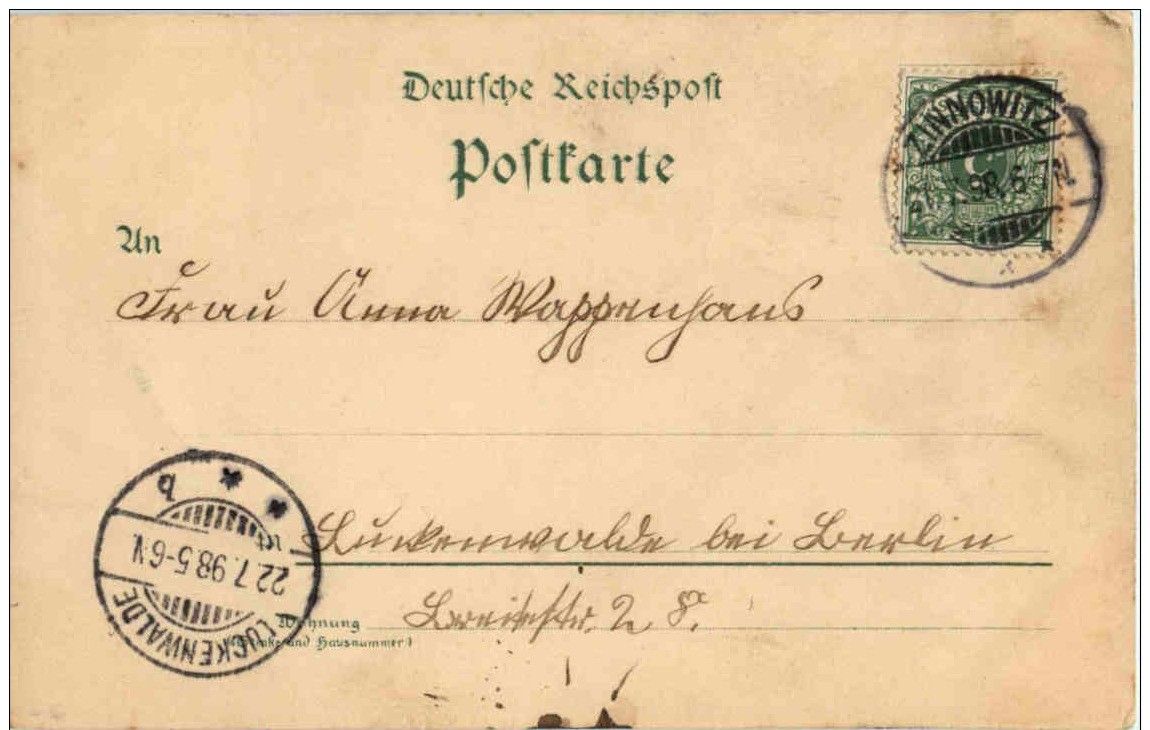 Deutsche Reichspost
Postkarte
ZINNOWITZ
21.7.98.6-7N.
An
Frau Anna Wappenhaus
Luckenwalde bei Berlin
Wohnung
Breitestr.
(Straße und Hausnummer)
b
22.7.98.5-6N.
LUCKENWALDE